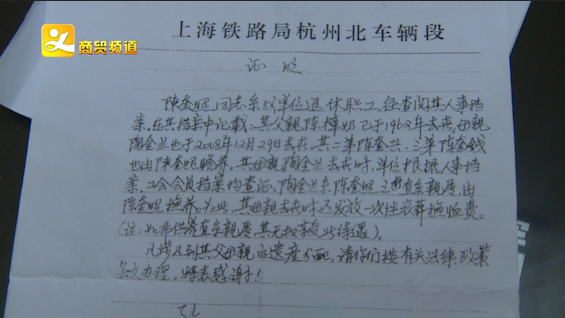 商贸频道
上海铁路局杭州北车辆段
证明
陈奎照同志系我单位退休职工,经查阅其人事档
案,在其档案中记载:其父亲陈樟奶已于1962年去世,母亲
陶金兰也于2008年12月29日去世,其二弟陈奎兴、三弟陈奎钱
也由陈奎照赡养。其母亲陶金兰去世时,单位根据人事档
案、工会会员档案均查记,陶金兰系陈奎照之直系亲属,由
陈奎照抚养,为此,其母亲去世时还发放一次性丧葬抚恤费。
(注:如非供养直系亲属,其无权享受此待遇)。
凡涉及到其父母亲的遗产分配,请你们按有关法律、政策
条文办理,特表感谢!